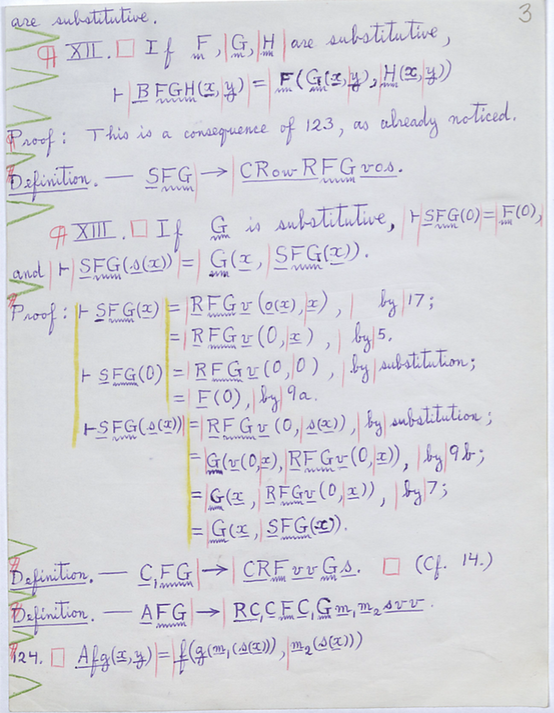 3
are substitutive.
¶ XII. □ If F, G, H are substitutive,
⊢ BFGH(x, y) = F(G(x, y), H(x, y))
Proof: This is a consequence of 123, as already noticed.
Definition. — SFG → CRowRFGvos.
¶ XIII. □ If G is substitutive, ⊢ SFG(0) = F(0),
and ⊢ SFG(s(x)) = G(x, SFG(x)).
Proof: ⊢ SFG(x) = RFGv(o(x), x), by 17;
= RFGv(0, x), by 5.
⊢ SFG(0) = RFGv(0, 0), by substitution;
= F(0), by 9a.
⊢ SFG(s(x)) = RFGv(0, s(x)), by substitution;
= G(v(0, x), RFGv(0, x)), by 9b;
= G(x, RFGv(0, x)), by 7;
= G(x, SFG(x)).
Definition. — C₁FG → CRFvvGs. □ (Cf. 14.)
Definition. — AFG → RC₁CFC₁Gm₁m₂svv.
124. □ Afg(x, y) = f(g(m₁(s(x))), m₂(s(x)))